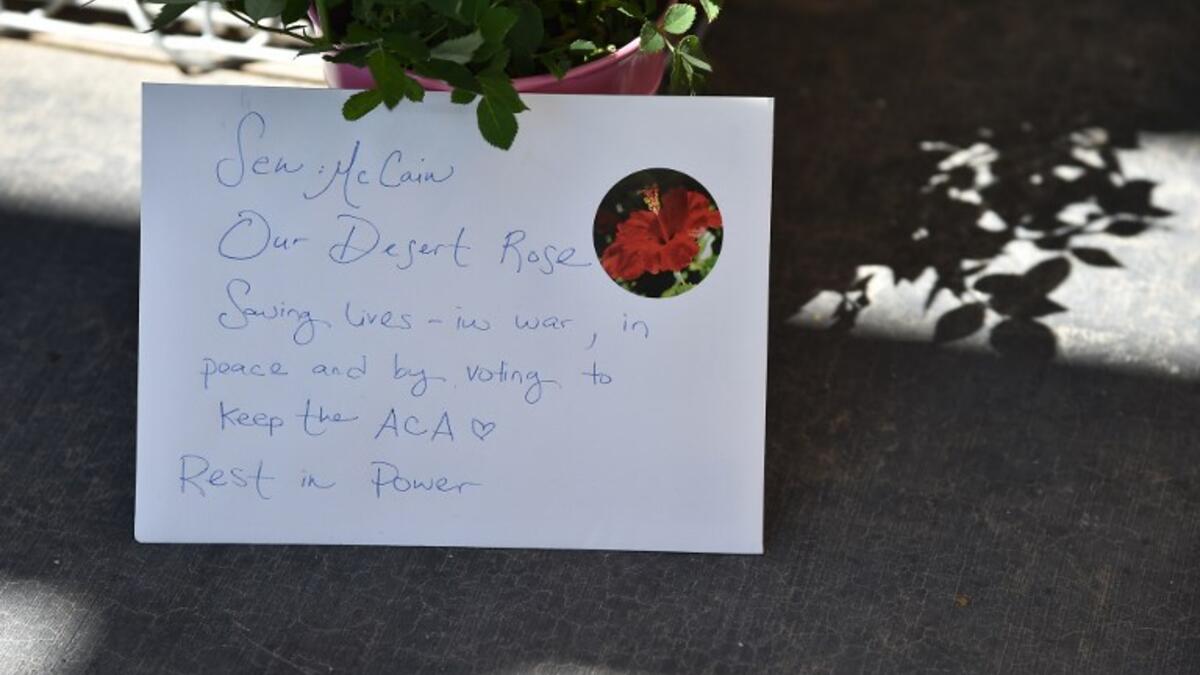 Sen. McCain
Our Desert Rose
Saving lives - in war, in
peace and by voting to
keep the ACA ♡
Rest in Power